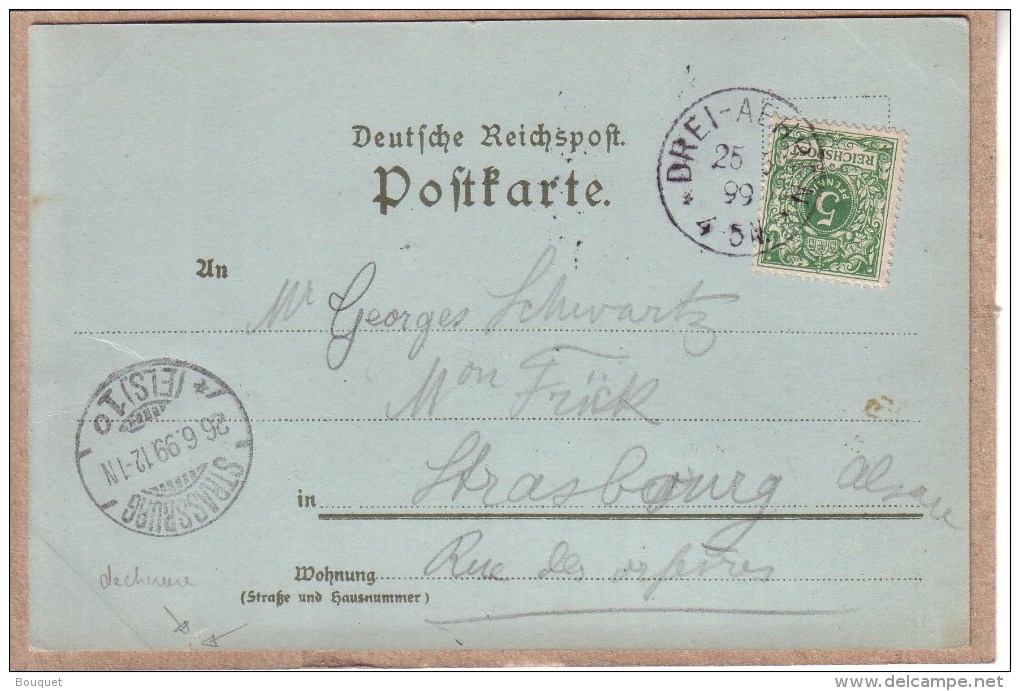 Deutsche Reichspost.
Postkarte.
DREI-AEHREN
25
99
4-5N
REICHSPOST
5
PFENNIG
An
Mr Georges Schwartz
Mon Frick
in Strasbourg Alsace
Wohnung Rue des orfèvres
(Straße und Hausnummer)
STRASSBURG
26.6.99.12-1N
* (ELS) 10
dechirure
Bouquet
delcampe.net